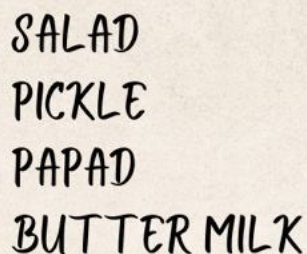 SALAD
PICKLE
PAPAD
BUTTER MILK